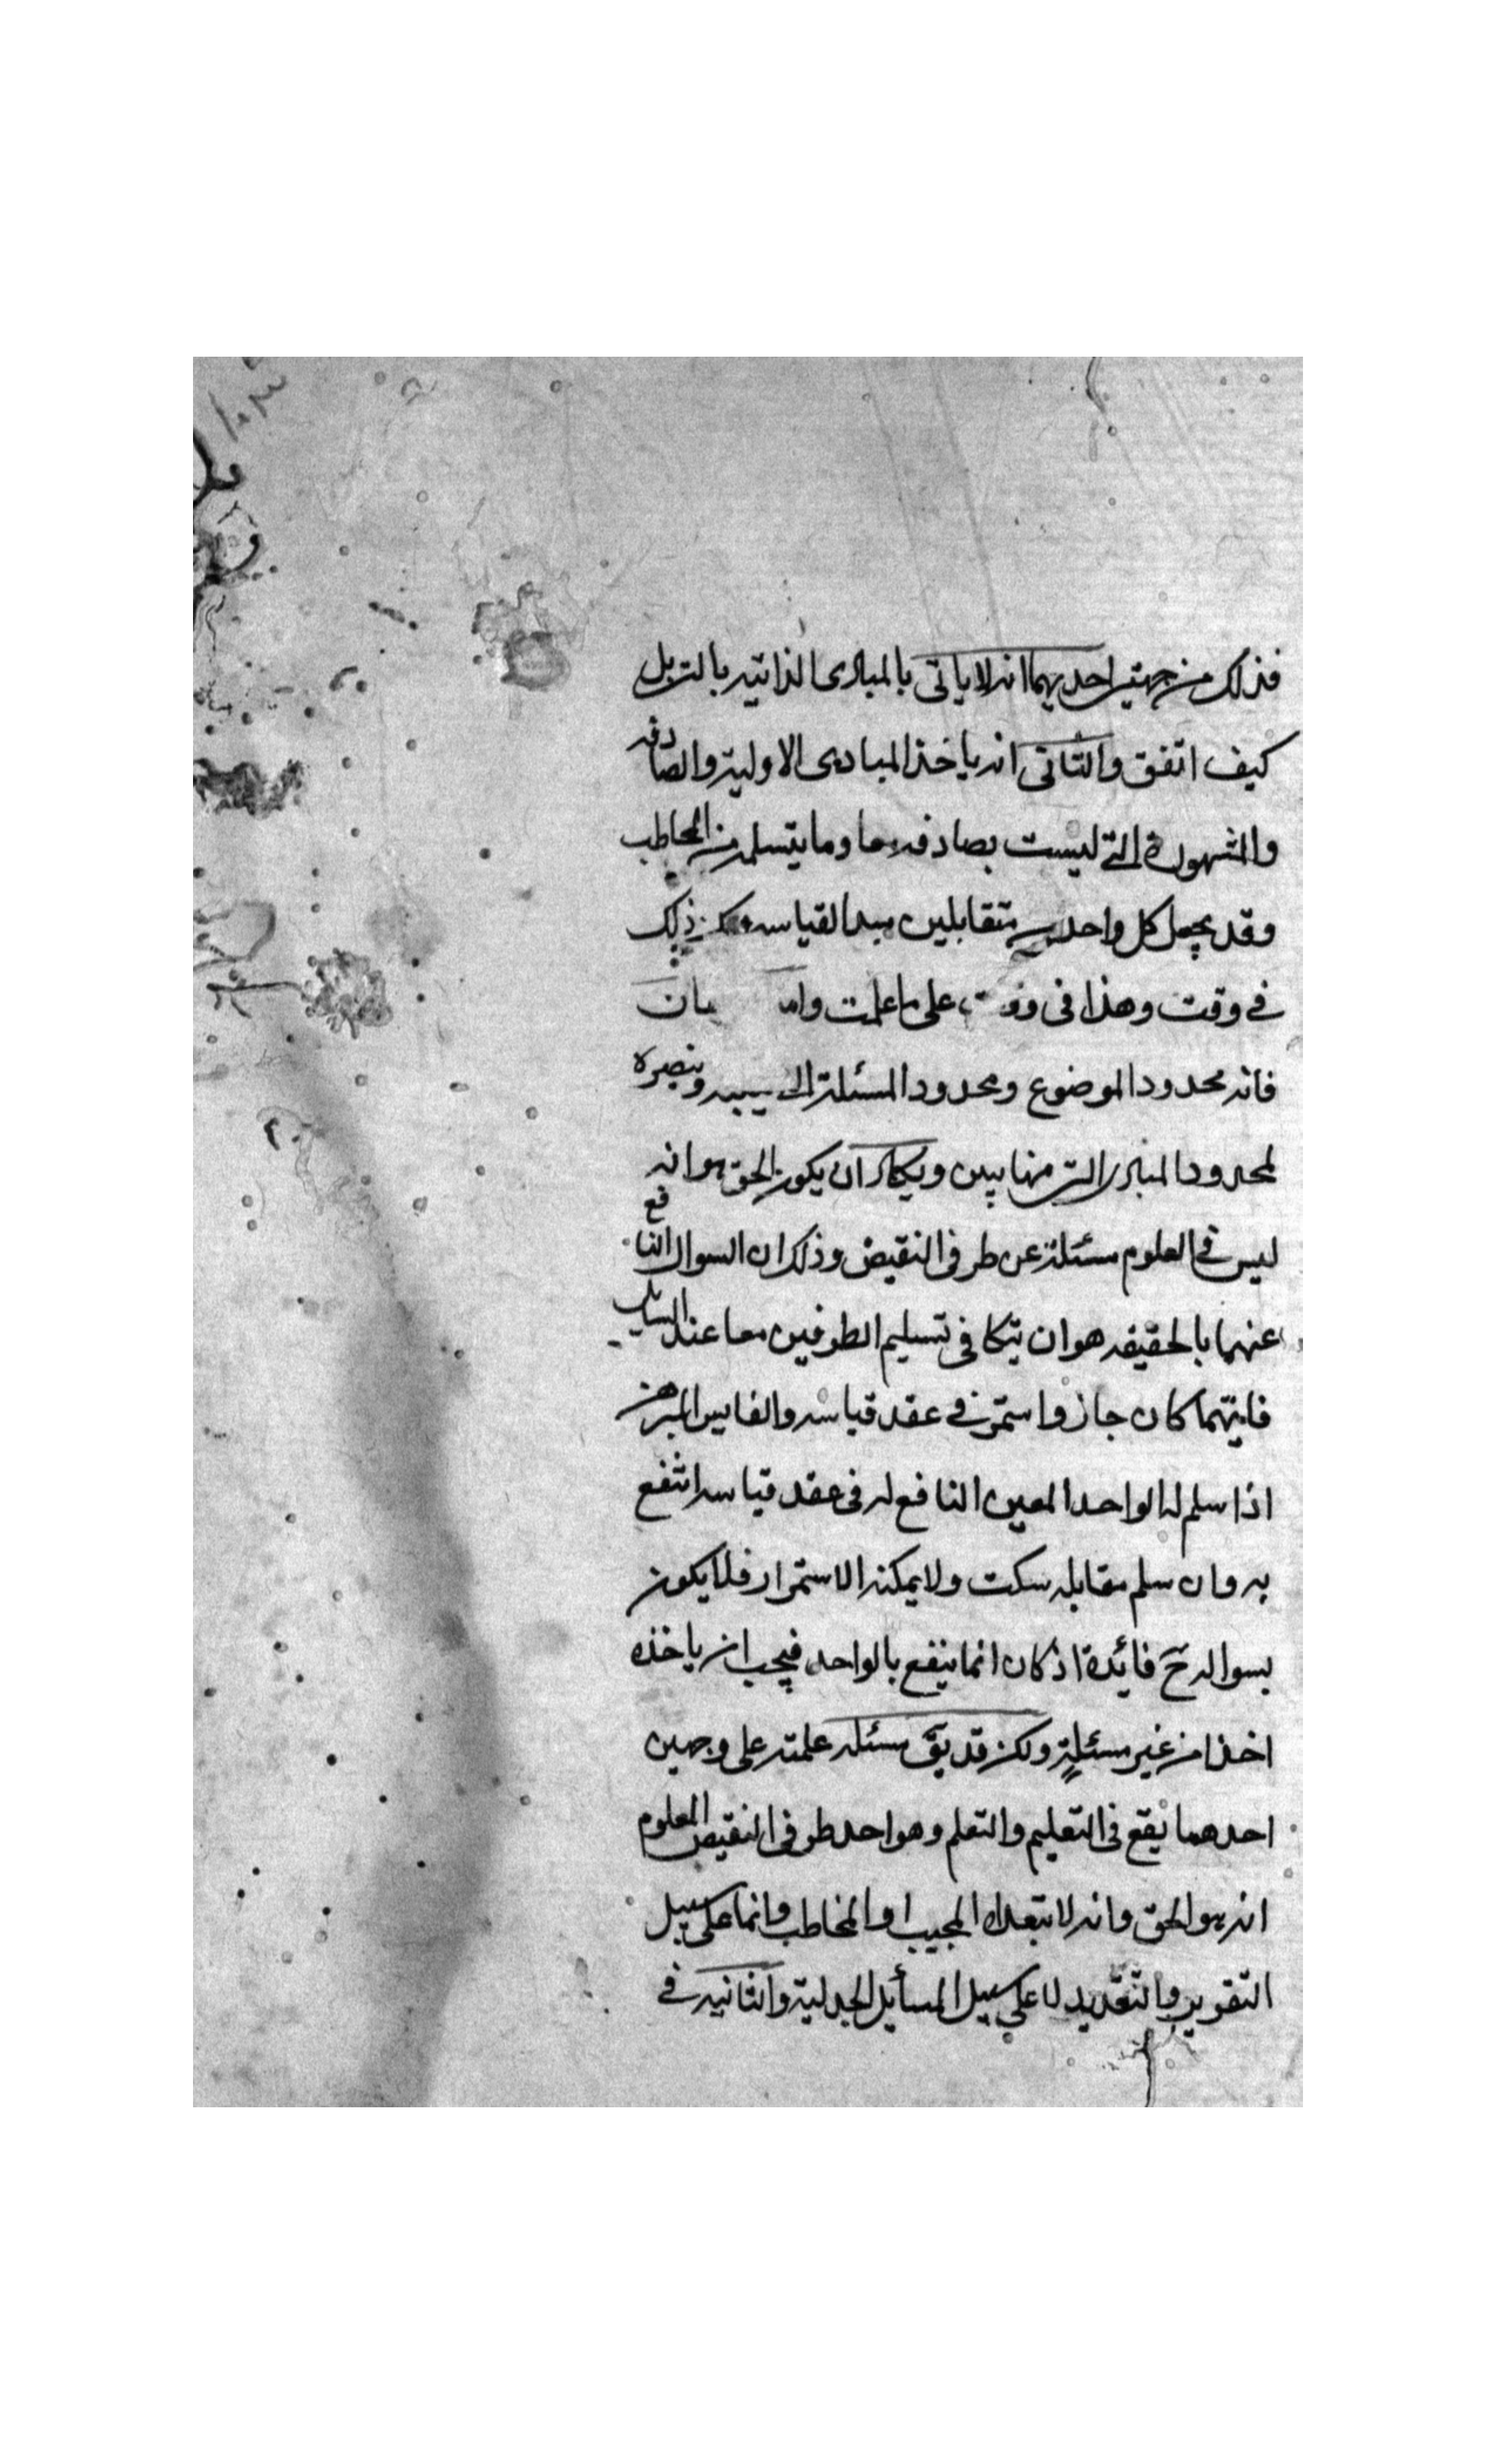 فذلك من جهتين احديهما انه لا ياتى بالمبادى الذاتيه بالتر بل
كيف اتفق والثانى انه ياخذ المبادى الاولية والصادقه
والمشهورة التى ليست بصادقه وما يتسلمه من المخاطب
وقد يجعل كل واحد من متقابلين مبدا لقياسه ذلك
فى وقت وهذا فى وقت على ما علمت
فانه محدود الموضوع ومحدود المسئلة
محدود المبادى التى منها يبين ويكاد ان يكون الحق هو انه
ليس فى العلوم مسئلة عن طرفى النقيض وذلك ان السوال النافع
عنهما بالحقيقه هو ان يتكافى تسليم الطرفين معا عند السايل
فايتهما كان جاز واستمر فى عقد قياسه والقايس المبرهن
اذا سلم له الواحد المعين النافع له فى عقد قياسه انتفع
به وان سلم مقابله سكت ولا يمكنه الاستمرار فلا يكون
بسواله ح فائدة اذ كان انما ينفع بالواحد فيجب ان ياخذه
اخذا من غير مسئلة ولكن قد يق مسئله علمته على وجهين
احدهما يقع فى التعليم والتعلم وهو احد طرفى النقيض المعلوم
انه هو الحق وانه لا المجيب او المخاطب وانما على سبيل
التقرير والتعديد لا على سبيل المسأيل الجدلية والثانيه فى